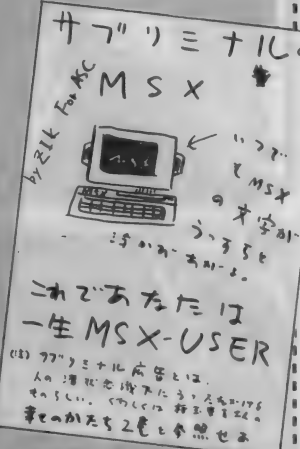 サブリミナル
MSX
by ZIK For ASC
MSX
いつで
とMSX
の文字が
うっすらと
これであなたは
一生MSX-USER
(注)サブリミナル広告とは、
人の潜在意識下にうったえかける
ものらしい。くわしくは
幸せのかたち2巻を参照せよ